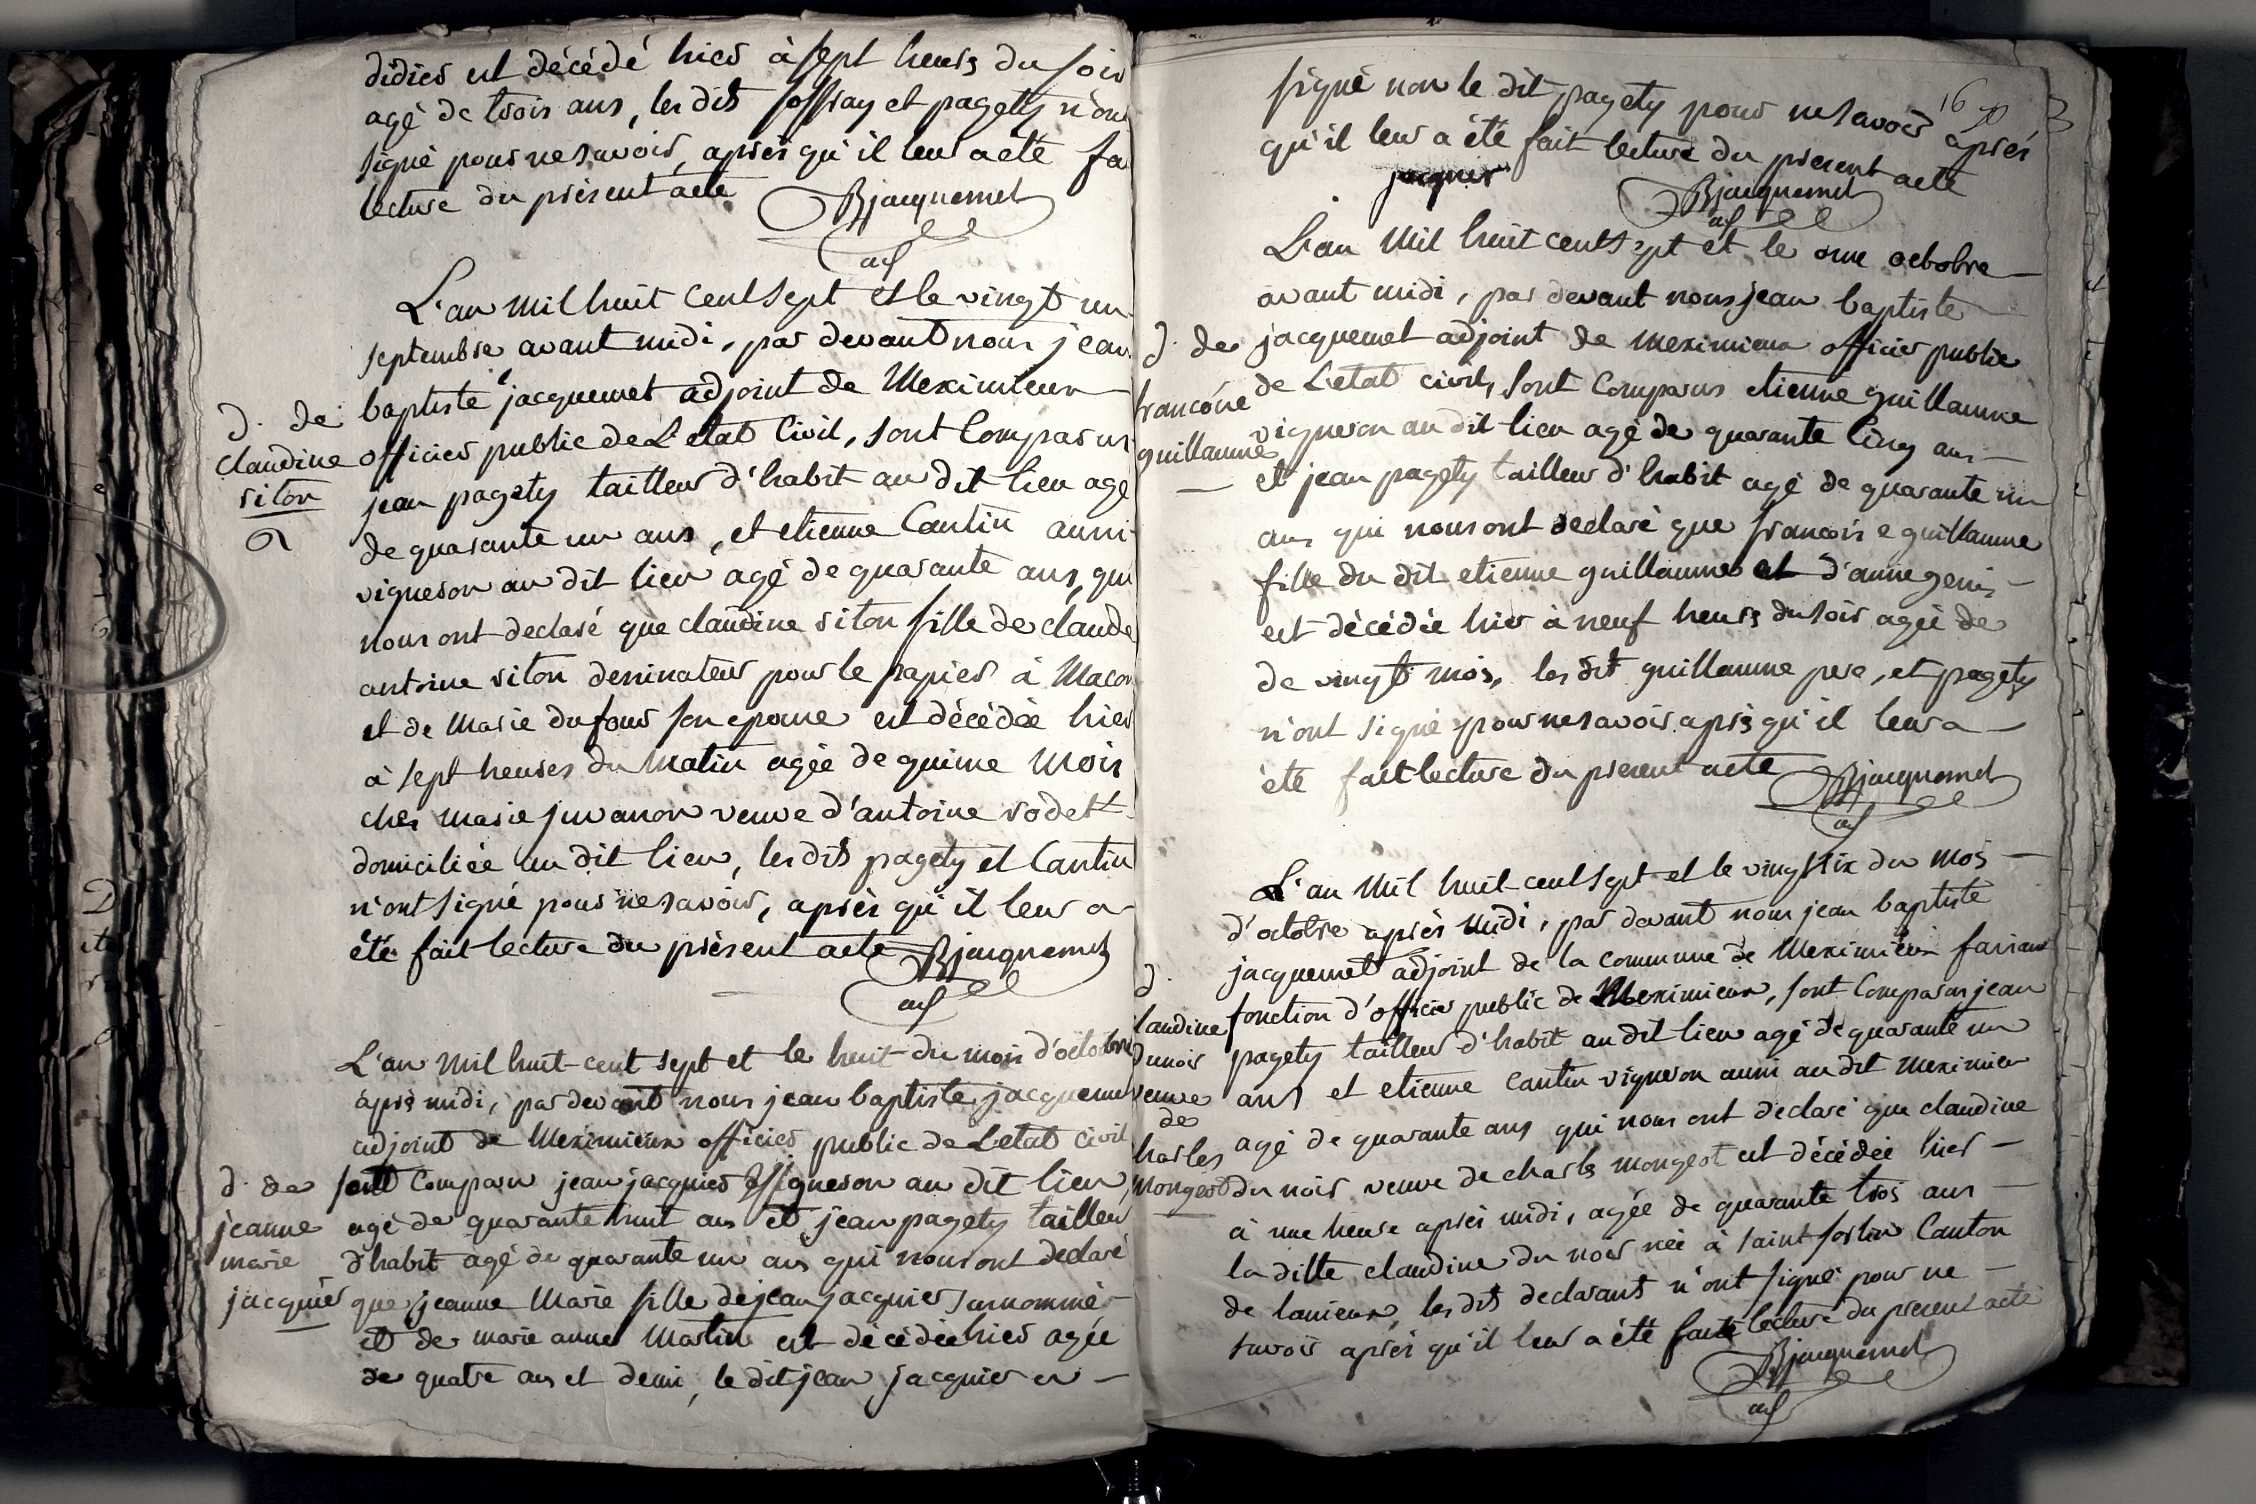 didier est décédé hier à sept heurs du soir
agé de trois ans, les dits joffray et pagety n'ont
signé pour ne savoir, après qu'il leur a été fa
lecture du présent acte Bjacquemet
adj
L'an mil huit cent sept et le vingt un
septembre avant midi, par devant nous jean
baptiste jacquemet adjoint de Meximieux
d. de
claudine
siton
officier public de L'etat Civil, sont Comparus
jean pagety tailleur d'habit au dit lieu agé
de quarante un ans, et etienne Cantin aussi
vigneron au dit lieu agé de quarante ans, qui
nous ont declaré que claudine siton fille de claude
antoine siton dessinateur pour le papier à Macon
et de Marie dufour son epouse est décédée hier
à sept heures du Matin agée de quinze Mois
chés marie juvanon veuve d'antoine rodet
domiciliée au dit lieu, les dits pagety et Cantin
n'ont signé pour ne savoir, après qu'il leur a
été fait lecture du présent acte Bjacquemet
adj
L'an mil huit-cent sept et le huit du mois d'octobre
après midi, par devant nous jean baptiste jacquemet
adjoint de Meximieux officier public de L'etat civil
d. de
jeanne
marie
jacquier
sont Comparu jean jacquier vigneron au dit lieu
agé de quarante huit ans et jean pagety tailleur
d'habit agé de quarante un ans qui nous ont declaré
que jeanne Marie fille de jean jacquier surnommé
et de marie anne Martin est décédée hier agée
de quatre ans et demi, le dit jean jacquier a
16
signé non le dit pagety pour ne savoir après
qu'il leur a été fait lecture du present acte
jacquier Bjacquemet
adj
L'an Mil huit cent sept et le onze octobre
avant midi, par devant nous jean baptiste
d. de
francoise
guillaume
jacquemet adjoint de meximieux officier public
de L'etat civil, sont Comparus etienne guillaume
vigneron au dit lieu agé de quarante cinq ans
et jean pagety tailleur d'habit agé de quarante un
ans qui nous ont declaré que francoise guillaume
fille du dit etienne guillaume et d'anne genis
est décédée hier à neuf heurs du soir agée de
de vingt mois, les dit guillaume pere, et pagety
n'ont signé pour ne savoir après qu'il leur a
été fait lecture du present acte Bjacquemet
adj
L'an Mil huit-cent sept et le vingt six du mois
d'octobre après midi, par devant nous jean baptiste
jacquemet adjoint de la commune de Meximieux faisant
d.
laudine
dunoir
veuve
de
harles
Mongeot
fonction d'officier public de Meximieux, sont Comparus jean
pagety tailleur d'habit au dit lieu agé de quarante un
ans et etienne cantin vigneron aussi au dit meximieu
agé de quarante ans qui nous ont declaré que claudine
du noir veuve de charle mongeot est décédée hier
à une heure après midi, agée de quarante trois ans
la ditte claudine du noir née à saint sorlin Canton
de lanieux, les dits declarants n'ont signé pour ne
savoir après qu'il leur a été faite lecture du present acte
Bjacquemet
adj